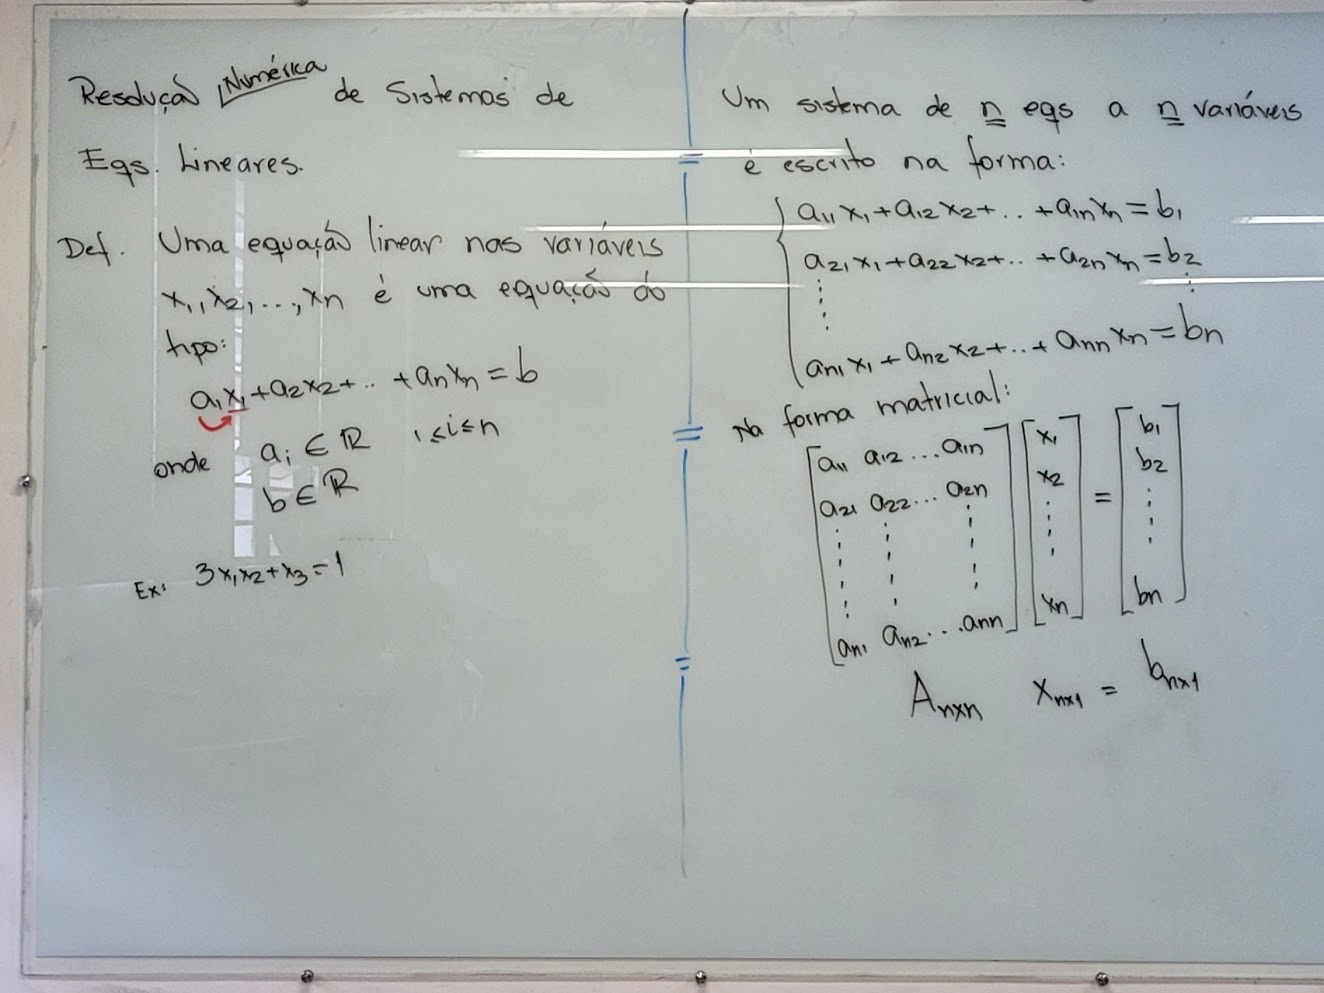 Resolução Numérica de Sistemas de
Eqs. Lineares.
Def. Uma equação linear nas variáveis
x₁, x₂, ..., xₙ é uma equação do
tipo:
a₁x₁ + a₂x₂ + .. + aₙxₙ = b
onde aᵢ ∈ ℝ 1≤i≤n
b ∈ ℝ
Ex: 3x₁x₂ + x₃ = 1
Um sistema de n eqs a n variáveis
é escrito na forma:
a₁₁x₁ + a₁₂x₂ + .. + a₁ₙxₙ = b₁
a₂₁x₁ + a₂₂x₂ + .. + a₂ₙxₙ = b₂
aₙ₁x₁ + aₙ₂x₂ + .. + aₙₙxₙ = bₙ
Na forma matricial:
a₁₁ a₁₂ ... a₁ₙ x₁ b₁
a₂₁ a₂₂ ... a₂ₙ x₂ = b₂
aₙ₁ aₙ₂ ... aₙₙ xₙ bₙ
Aₙₓₙ xₙₓ₁ = bₙₓ₁